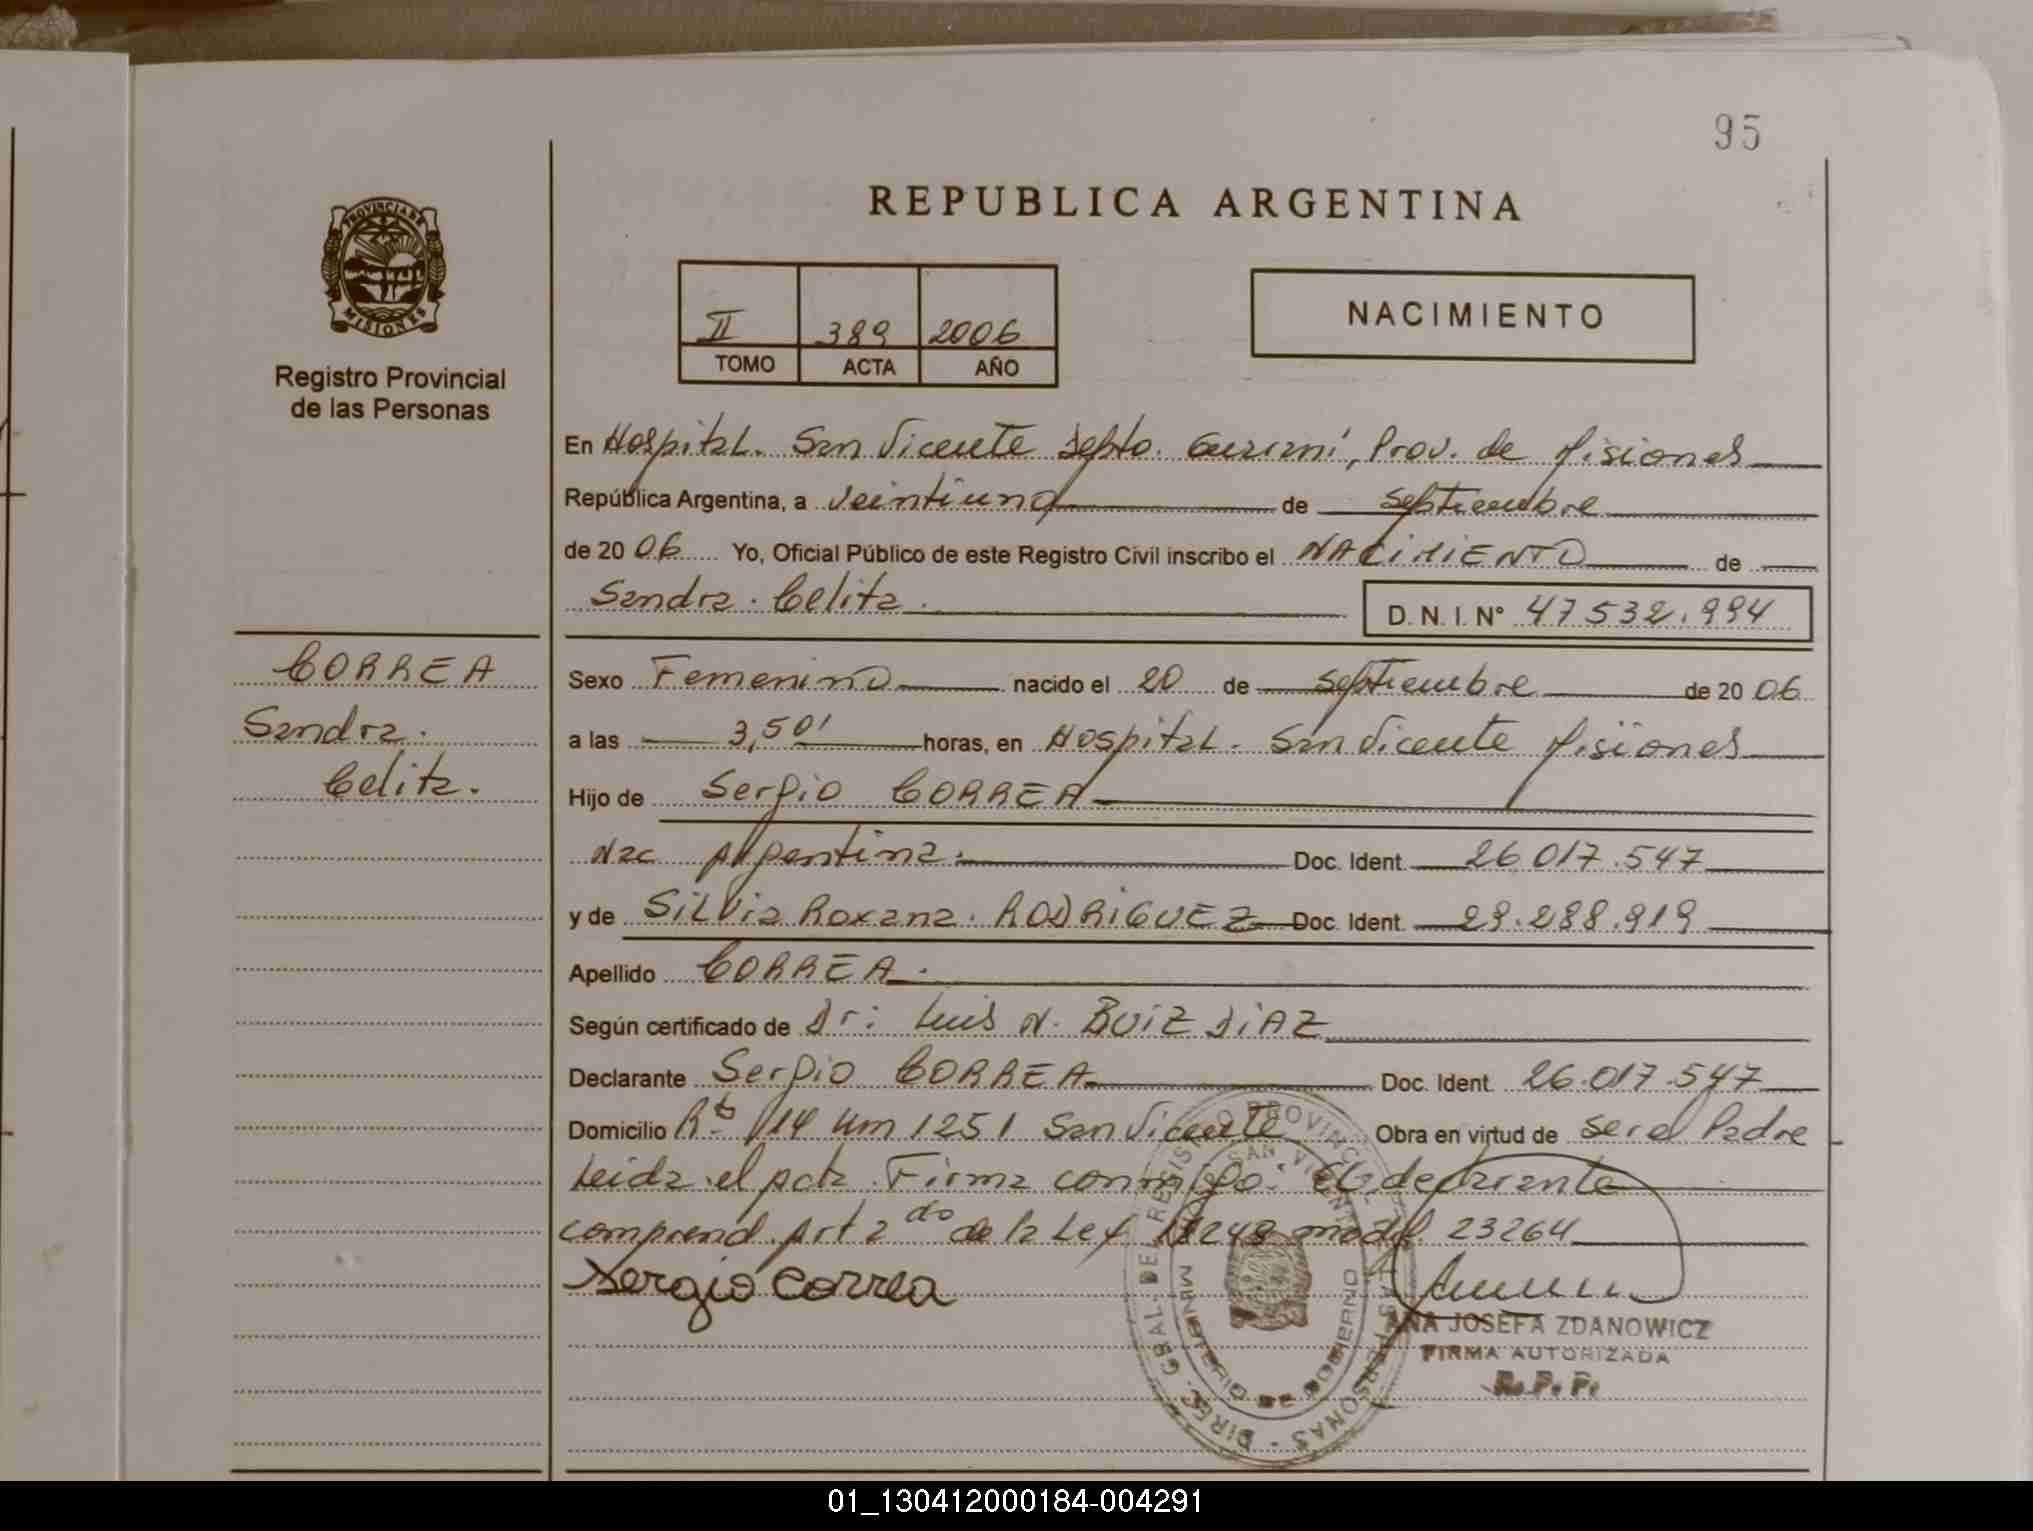 95
PROVINCIA DE
MISIONES
Registro Provincial
de las Personas
REPUBLICA ARGENTINA
II 389 2006
TOMO ACTA AÑO
NACIMIENTO
En Hospital. San Vicente Depto. Guaraní, Prov. de Misiones
República Argentina, a veintiuno de septiembre
de 20 06 Yo, Oficial Público de este Registro Civil inscribo el NACIMIENTO de
Sandra. Celita. D. N. I. N° 47532.994
CORREA
Sandra.
Celita.
Sexo Femenino nacido el 20 de septiembre de 20 06
a las 3,50' horas, en Hospital. San Vicente Misiones
Hijo de Sergio CORREA
Nac Argentina. Doc. Ident. 26.017.547
y de SILVia Roxana. RODRIGUEZ Doc. Ident. 29.288.919
Apellido CORREA.
Según certificado de Dr: Luis N. RUIZ DIAZ
Declarante Sergio CORREA Doc. Ident. 26.017.547
Domicilio Rta 14 Km 1251 San Vicente Obra en virtud de ser el Padre
Leida el acta. Firma conmigo. El declarante
comprend. Art 2do de la Ley 18248 modif 23264
Sergio Correa
DIREC. GRAL. DEL REGISTRO PROVINCIAL DE LAS PERSONAS
SAN VICENTE
MINISTERIO DE GOBIERNO
ANA JOSEFA ZDANOWICZ
FIRMA AUTORIZADA
R. P. P.
01_130412000184-004291